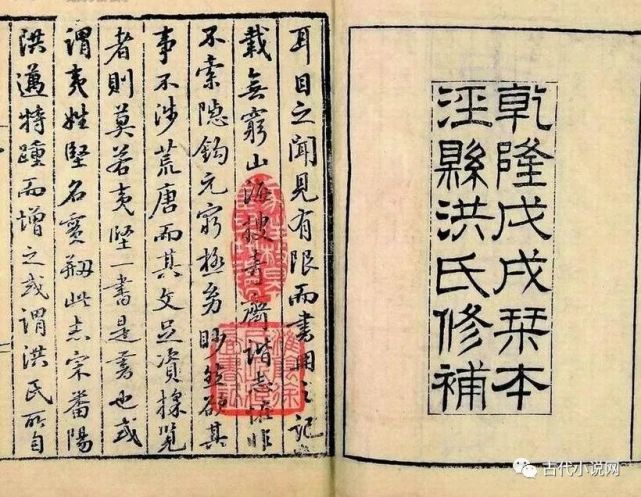 乾隆戊戌栞本
涇縣洪氏修補
耳目之聞見有限而書冊之記
載無窮山海搜奇齊諧志怪非
不索隱鉤元窮極幼眇然欲其
事不涉荒唐而其文足資採覽
者則莫若夷堅一書是書也或
謂夷姓堅名實剏此志宋番陽
洪邁特踵而增之或謂洪氏所自
古代小说网